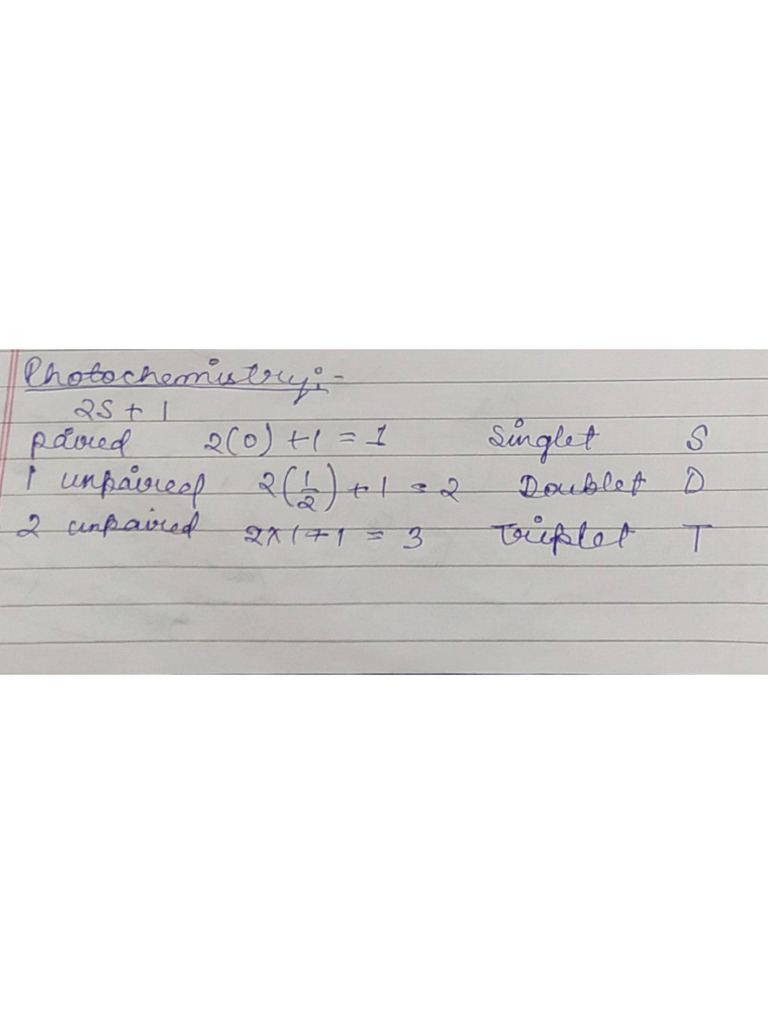 Photochemistry:-
2S + 1
paired 2(0) + 1 = 1 Singlet S
1 unpaired 2(1/2) + 1 = 2 Doublet D
2 unpaired 2x1+1 = 3 Triplet T